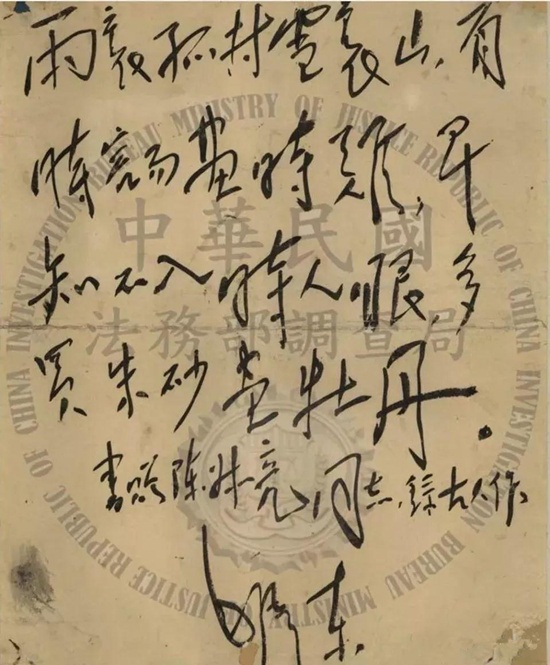 雨裏孤村雪裏山,看
時容易畫時難,早
知不入時人眼,多
買朱砂畫牡丹。
書贈陳亮同志,錄古人作
东
中華民國
法務部調查局
INVESTIGATION BUREAU MINISTRY OF JUSTICE REPUBLIC OF CHINA INVESTIGATION BUREAU MINISTRY OF JUSTICE REPUBLIC OF CHINA